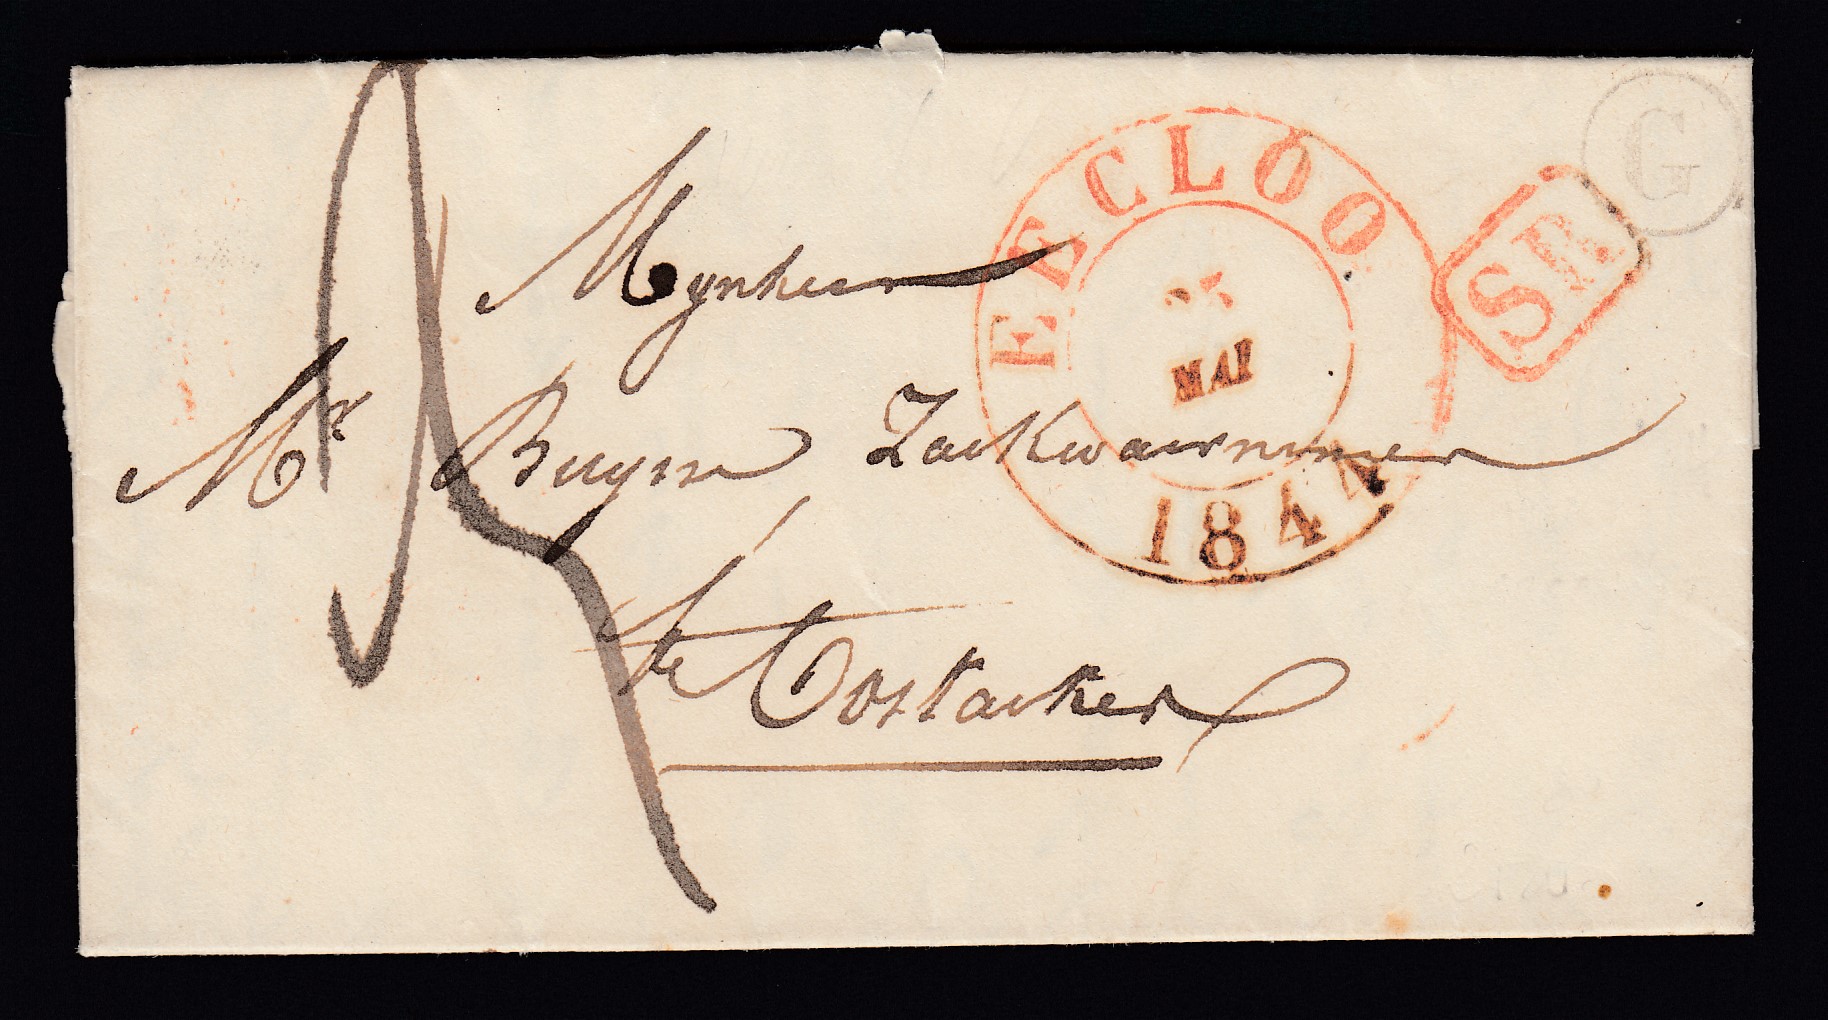 EECLOO
25
MAI
1844
SR
G
Mynheer
Mr Buyse Zaekwaernemer
te Oostacker